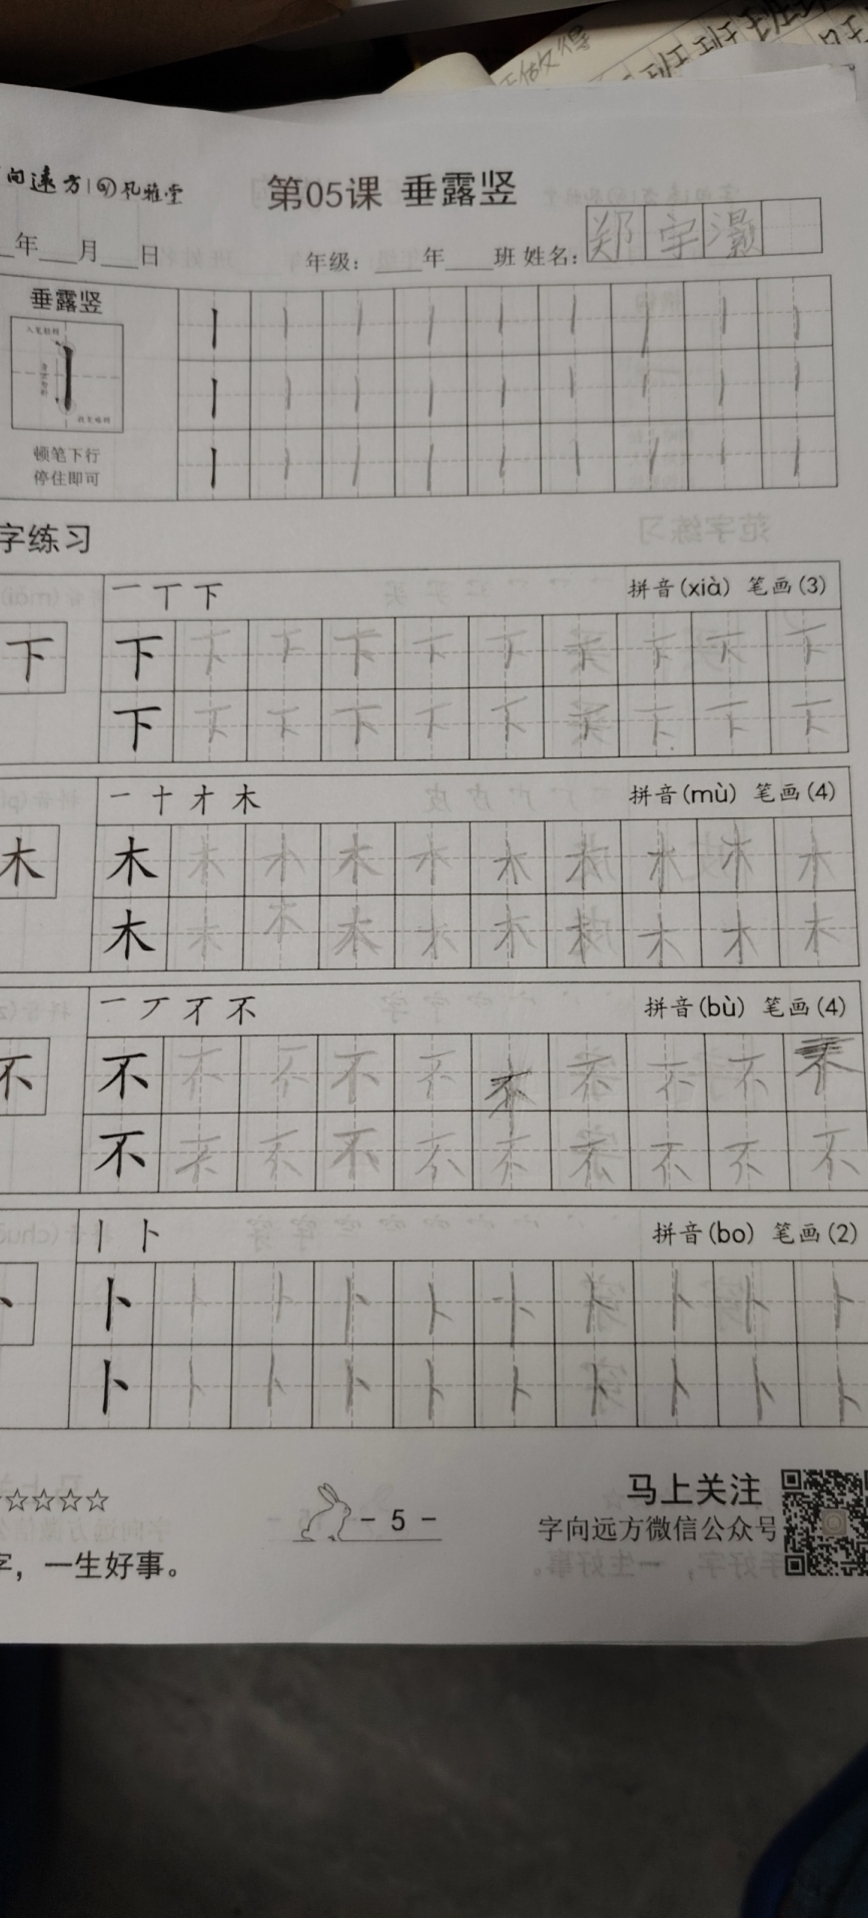 班班班班
做得
向遠方 风雅堂
第05课 垂露竖
年___月___日 年级：___年___班 姓名：郑宇灏
垂露竖
顿笔下行
停住即可
字练习
一丅下 拼音(xià) 笔画(3)
下 下 下 下 下 下 下 下 下 下 下
下 下 下 下 下 下 下 下 下 下
一十才木 拼音(mù) 笔画(4)
木 木 木 木 木 木 木 木 木 木 木
木 木 木 木 木 木 木 木 木 木
一丆不不 拼音(bù) 笔画(4)
不 不 不 不 不 不 不 不 不 不 不
不 不 不 不 不 不 不 不 不 不
丨卜 拼音(bo) 笔画(2)
卜 卜 卜 卜 卜 卜 卜 卜 卜 卜
卜 卜 卜 卜 卜 卜 卜 卜 卜 卜
☆☆☆☆☆
- 5 -
马上关注
字向远方微信公众号
字，一生好事。